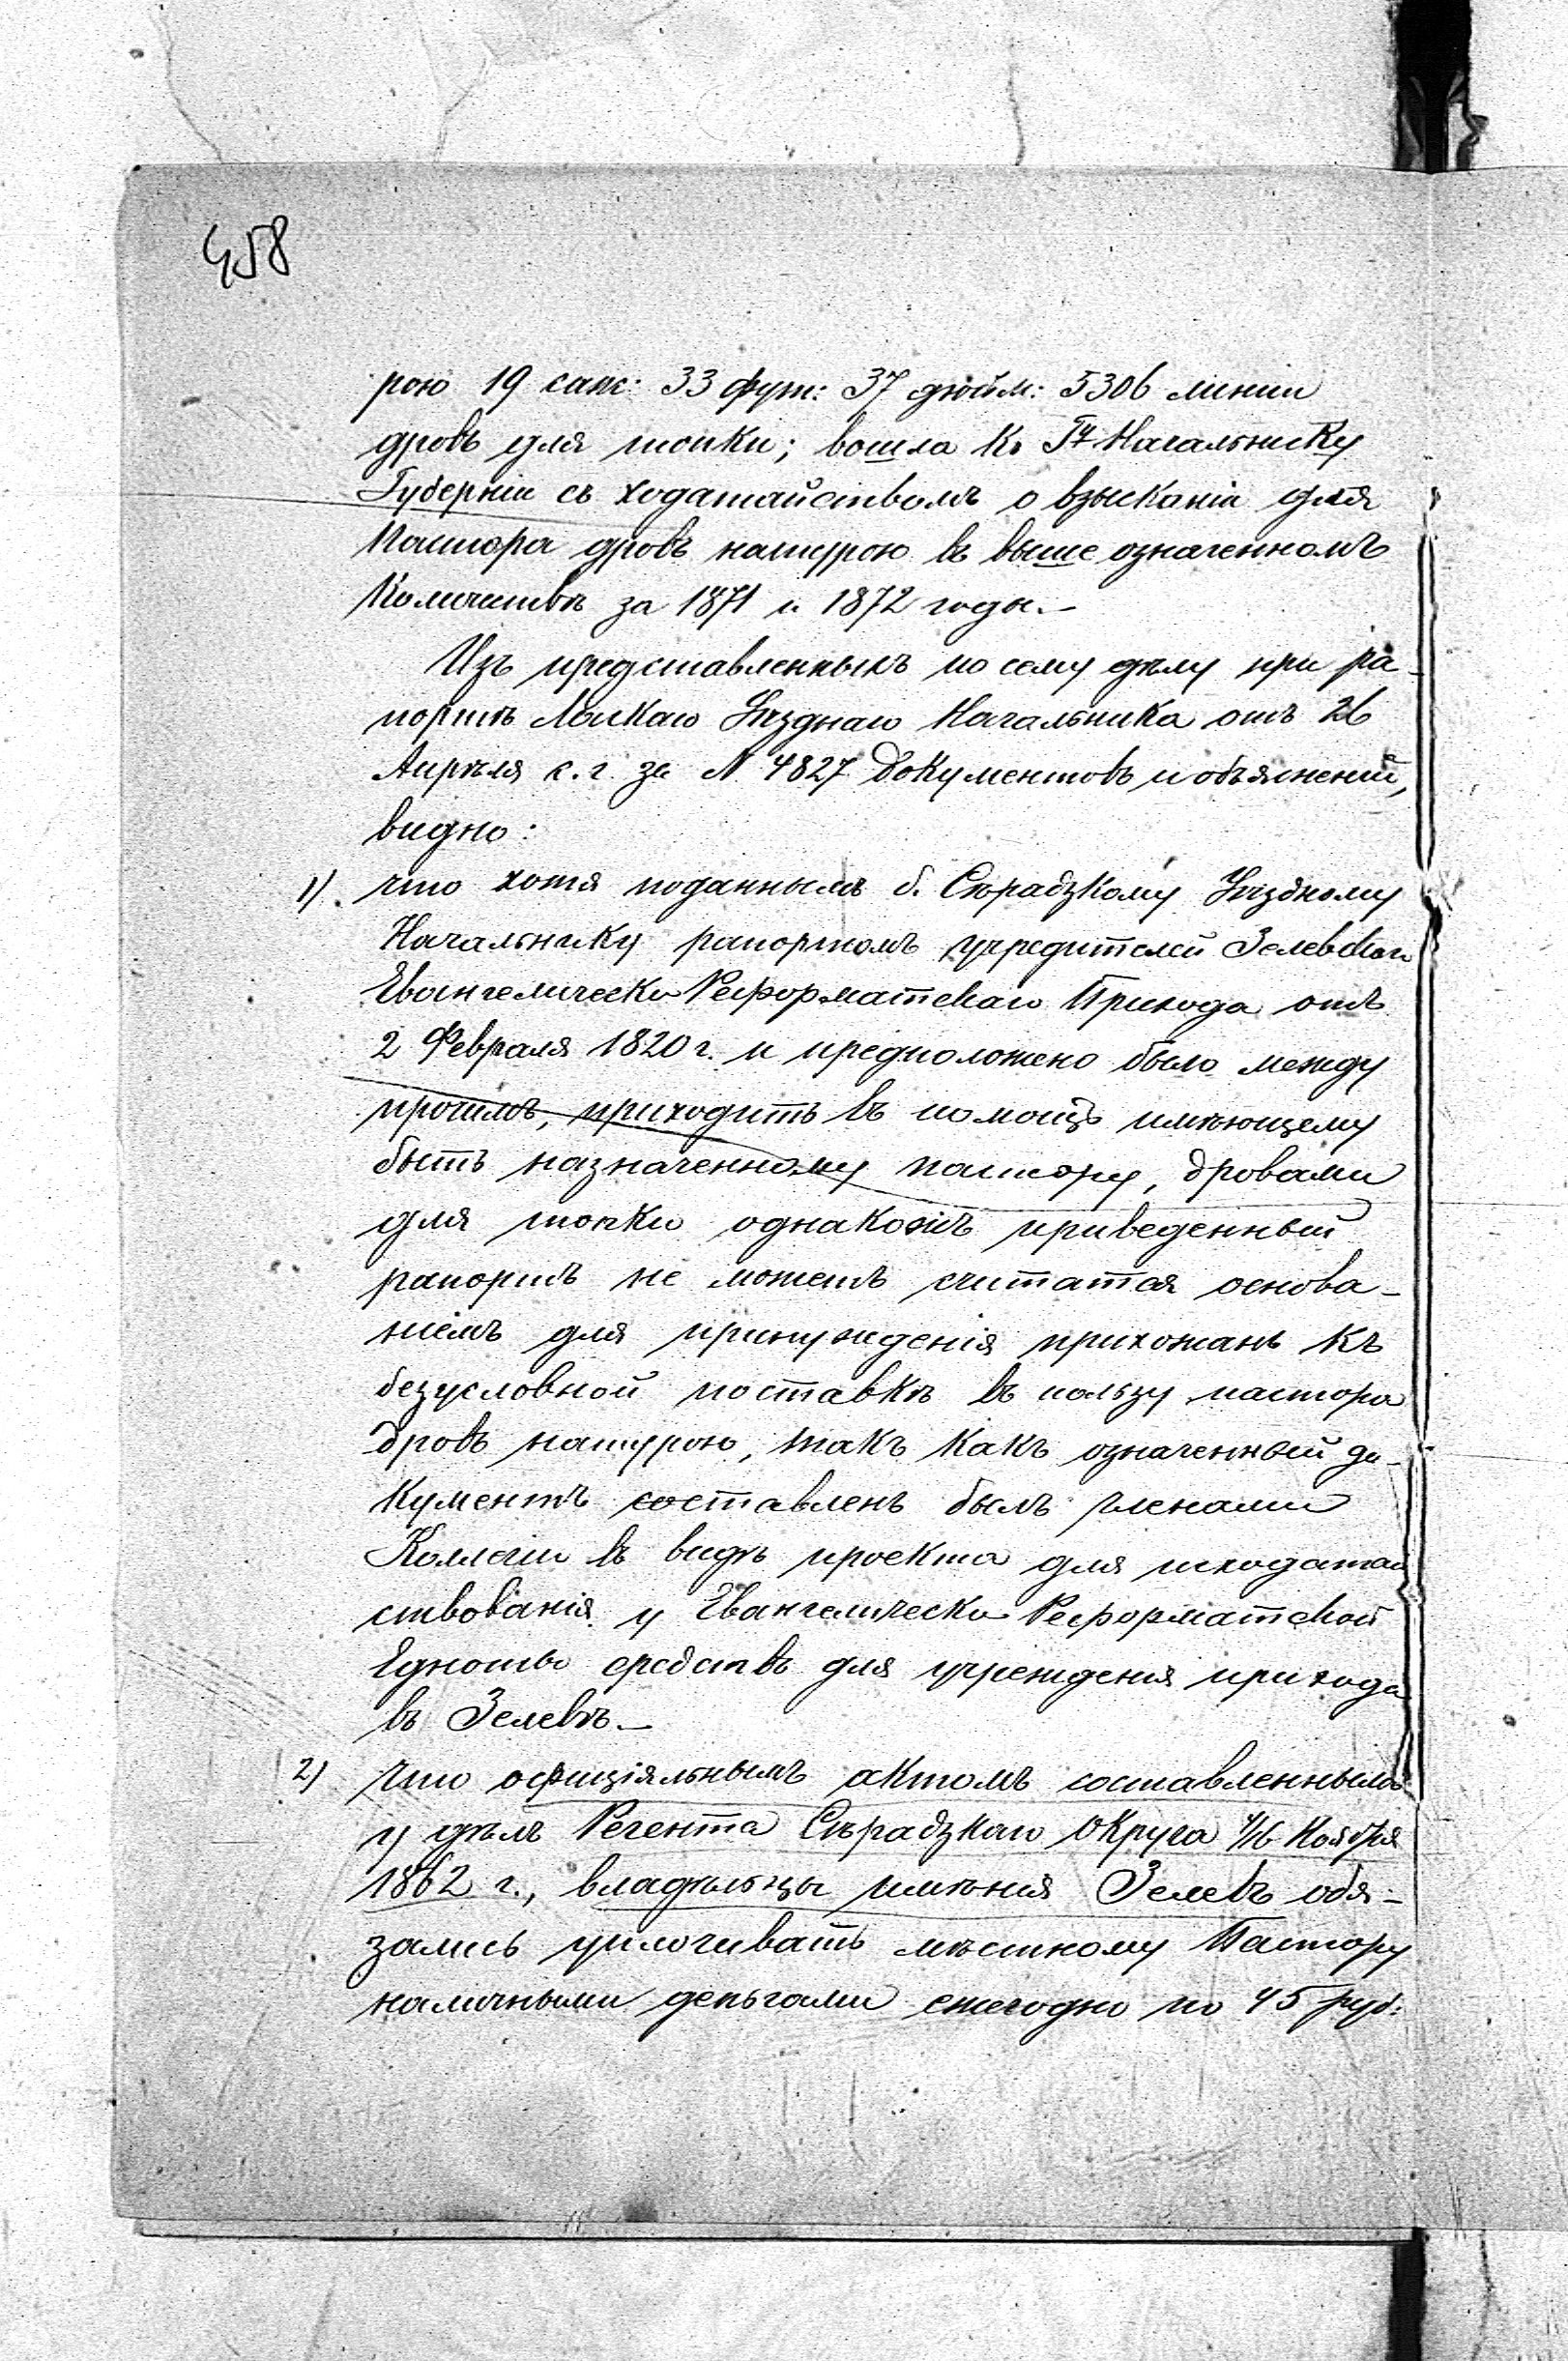 458
рою 19 саж: 33 фут: 37 дюйм: 5306 линіи
дровъ для топки; вошла къ Гну Начальнику
Губерніи съ ходатайствомъ о взысканіи для
Пастора дровъ натурою въ выше означенномъ
Количествѣ за 1871 и 1872 годы.–
Изъ представленныхъ по сему дѣлу при ра-
портѣ Ласкаго Уѣзднаго Начальника отъ 26
Апрѣля с. г. за N 4827 документовъ и объясненій,
видно:
1). что хотя поданнымъ б. Сѣрадзкому Уѣздному
Начальнику рапортомъ учредителей Зелевскаго
Евангелическо Реформатскаго Прихода отъ
2 Февраля 1820 г. и предположено было между
прочимъ, приходить въ помощь имѣющему
быть назначенному пастору, дровами
для топки однакожъ приведенный
рапортъ не можетъ считатся основа-
ніемъ для принужденія прихожанъ къ
безусловной поставкѣ въ пользу пастора
дровъ натурою, такъ какъ означенный до-
кументъ составленъ былъ членами
Коллегіи въ видѣ проекта для исходатай
ствованія у Евангелическо Реформатской
Едноты средствъ для учрежденія прихода
въ Зелевѣ.–
2) что офиціяльнымъ актомъ составленнымъ
у дѣлъ Регента Сѣрадзкаго Округа 4/16 Ноября
1862 г., владѣльцы имѣнія Зелевъ обя-
зались уплочивать мѣстному Пастору
наличными деньгами ежегодно по 45 руб: